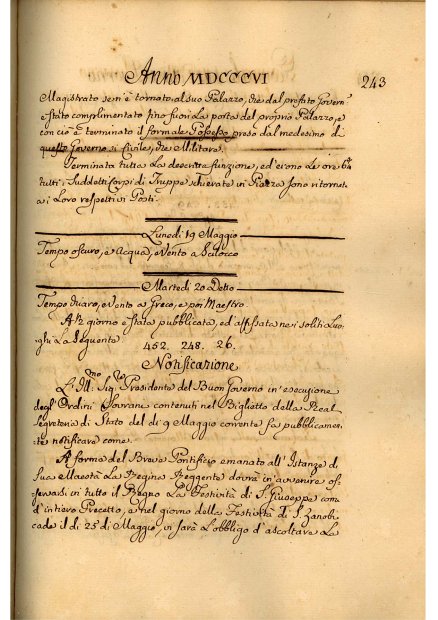 Anno MDCCCVI
243
Magistrato se n'è tornato al suo Palazzo, che dal prefato Govern
è stato complimentato fino fuori La porta del proprio Palazzo, e
con ciò è terminato il formale Possesso preso dal medesimo di
questo Governo sì Civile, che Militare.
Terminata tutta La descritta funzione, ed erono Le ore 6¼
tutti i Suddetti Corpi di Truppe schierate in Piazza sono ritornate
a i Loro respettivi Posti.
Lunedì 19 Maggio
Tempo oscuro, e Acqua, e Vento a Scilocco
Martedì 20 Detto
Tempo chiaro, e Vento a Greco, e poi Maestro.
A giorno è stata pubblicata, ed affissata nei soliti Luo
ghi La Seguente
452. 248. 26.
Notificazione
L'Ill.mo Sig.re Presidente del Buon Governo in esecuzione
degl'Ordini Sovrani contenuti nel Biglietto della Real
Segreteria di Stato del dì 9 Maggio corrente fa pubblicamen
te notificare come.
A forma del Breve Pontificio emanato all'Istanze di
Sua Maestà La Regina Reggente dovrà in avvenire os
servarsi in tutto il Regno La Festività di S. Giuseppe come
d'intiero Precetto, e nel giorno della Festività di S. Zanobi
cade il dì 25 di Maggio, vi sarà L'obbligo d'ascoltare La